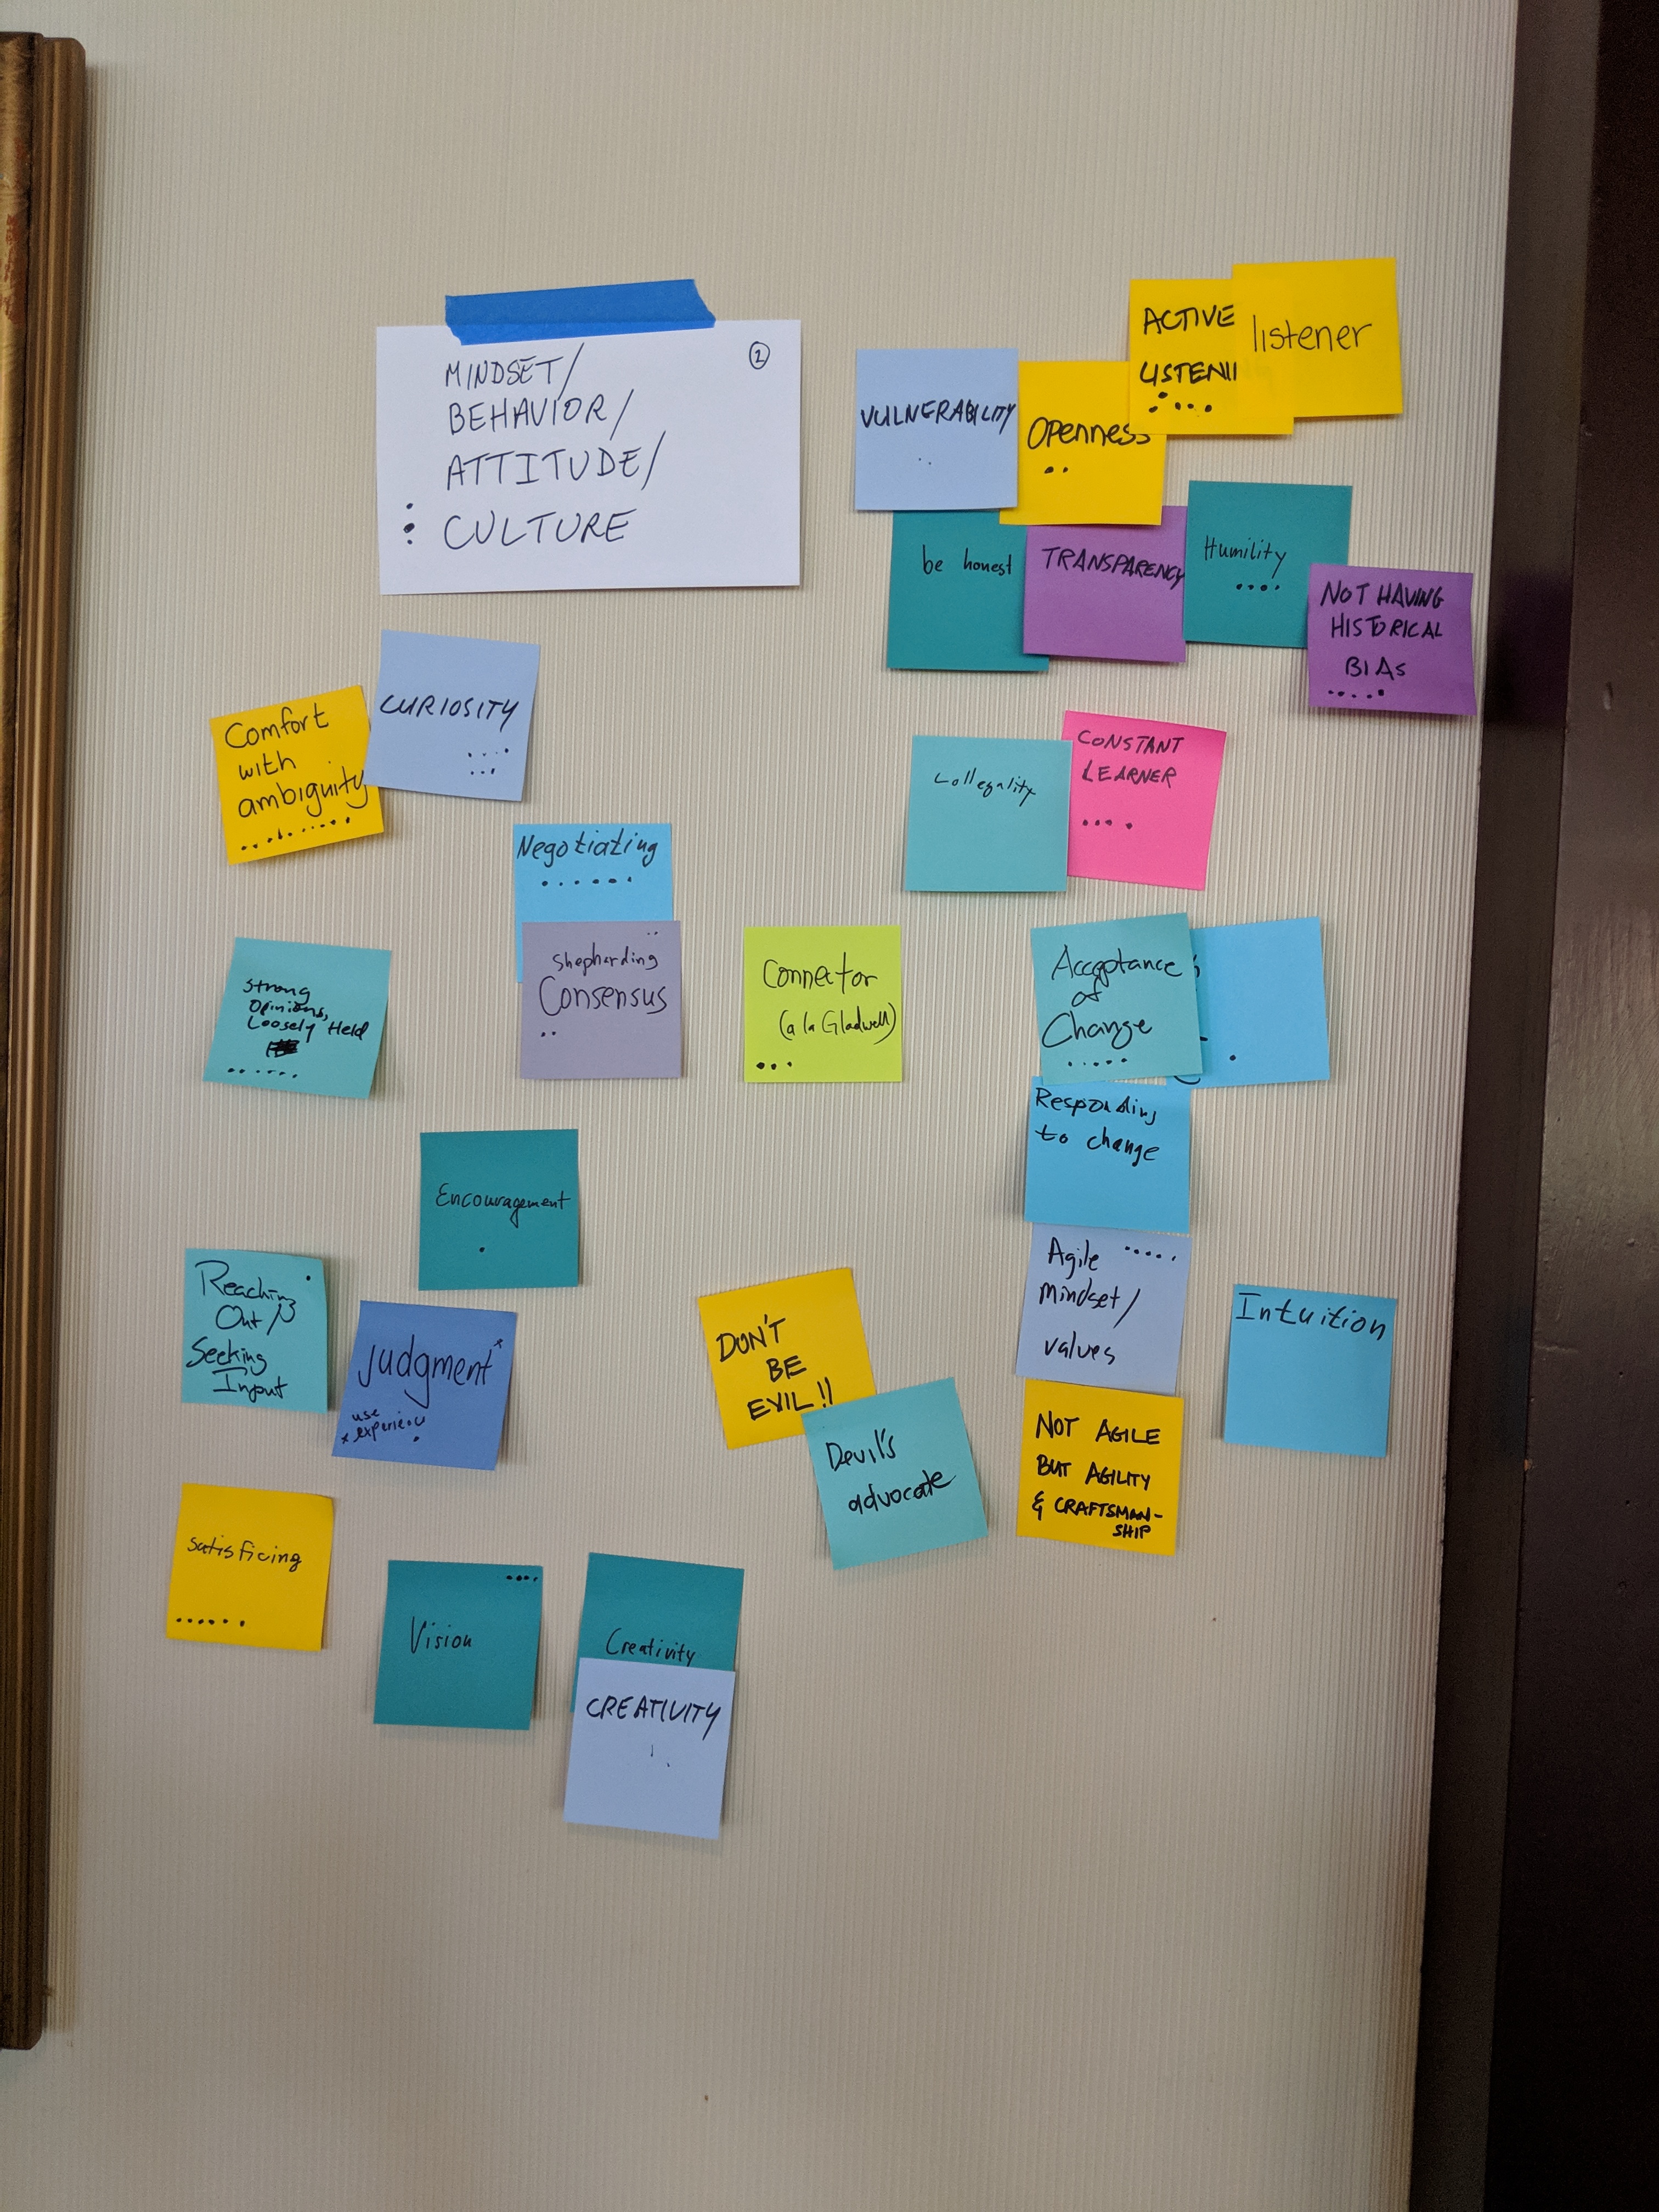 MINDSET/
BEHAVIOR/
ATTITUDE/
CULTURE
2
VULNERABILITY
Openness
ACTIVE
LISTENI
listener
be honest
TRANSPARENCY
Humility
NOT HAVING
HISTORICAL
BIAS
Comfort
with
ambiguity
CURIOSITY
Collegality
CONSTANT
LEARNER
Negotiating
Shepharding
Consensus
Connector
(a la Gladwell)
Acceptance
of
Change
Strong
Opinions,
Loosely Held
Responding
to change
Encouragement
Agile
Mindset/
values
Reaching
Out/
Seeking
Input
Judgment*
*use
experience
DON'T
BE
EVIL!!
Devil's
advocate
Intuition
NOT AGILE
BUT AGILITY
& CRAFTSMAN-
SHIP
Satisficing
Vision
Creativity
CREATIVITY